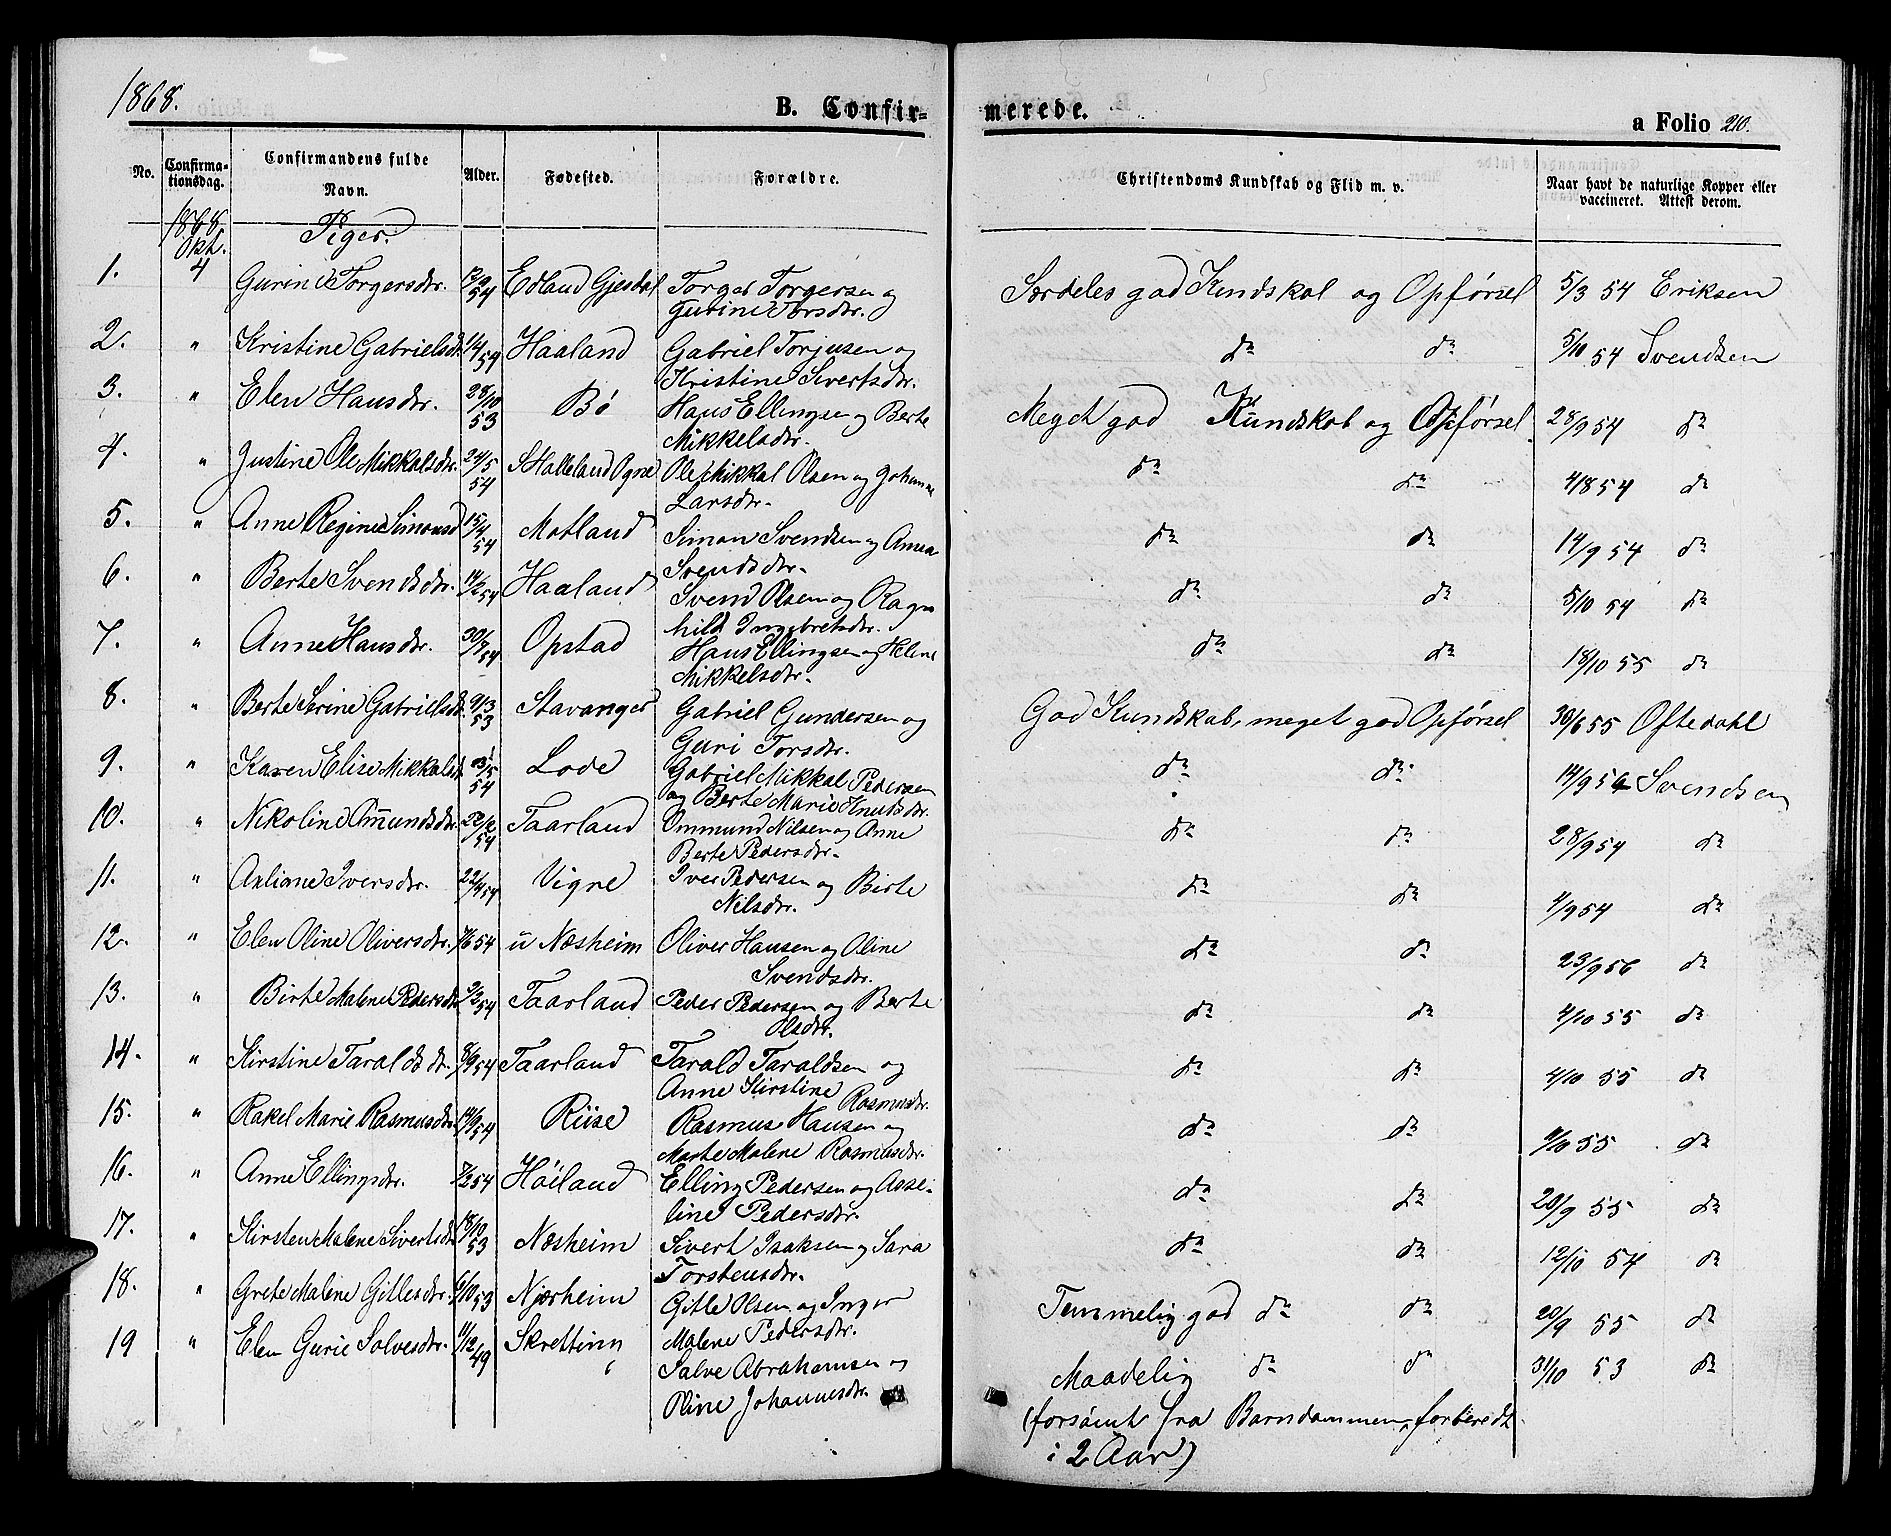 1868.
B. Confir-
merede.
a Folio 210.
No.
Confirma-
tionsdag.
Confirmandens fulde
Navn.
Alder.
Fødested.
Forældre.
Christendoms Kundskab og Flid m. v.
Naar havt de naturlige Kopper eller
vaccineret. Attest derom.
1868
Okt.
Piger.
1. 4 Gurine Torgersdtr. 12/2 54 Edland Gjesdal Torger Torgersen og Særdeles god Kundskab og Opførsel 5/3 54 Eriksen
Gurine Torsdtr.
2. " Kristine Gabrielsdt. 1/4 54 Haaland Gabriel Torjusen og do do 5/10 54 Svendsen
Kristine Sivertsdtr.
3. " Elen Hansdtr. 28/10 53 Bø Hans Ellingsen og Berte Meget god Kundskab og Opførsel 28/9 54 do
Mikkelsdtr.
4. " Justine Ole Mikkalsdtr. 24/5 54 S Halleland Ogne Ole Mikkal Olsen og Johanne do do 4/8 54 do
Larsdtr.
5. " Anne Regine Simonsd 15/4 54 Motland Simon Svendsen og Anna do do 14/9 54 do
Svendsdtr.
6. " Berte Svendsdtr. 14/2 54 Haaland Svend Olsen og Ragn do do 5/10 54 do
hild Ingebretsdtr.
7. " Anne Hansdtr. 54 Opstad Hans Ellingsen og Helene do do 18/10 55 do
Mikkelsdtr.
8. " Berte Serine Gabrielsdt. 9/3 53 Stavanger Gabriel Gundersen og God Kundskab, meget god Opførsel 30/6 55 Oftedahl
Guri Torsdtr.
9. " Karen Elise Mikkalsdt. 54 Lode Gabriel Mikkal Pedersen do do 14/9 54 Svendsen
og Berte Marie Knudsdtr.
10. " Nikoline Omundsdtr. 22/2 54 Taarland Ommund Nilsen og Anne do do 28/9 54 do
Berte Pedersdtr.
11. " Axliane Iversdtr. 22/4 54 Vigre Iver Pedersen og Birte do do 4/9 54 do
Nilsdtr.
12. " Elen Oline Oliversdtr. 7/6 54 u Næsheim Oliver Hansen og Oline do do 23/9 56 do
Svendsdtr.
13. " Birte Malene Pedersdtr 3/3 54 Taarland Peder Pedersen og Berte do do 4/10 55 do
Olsdtr.
14. " Kirstine Taraldsdtr. 8/9 54 Taarland Tarald Taraldsen og do do 4/10 55 do
Anne Kirstine Rasmusdtr.
15. " Rakel Marie Rasmusdtr. 14/9 54 Riise Rasmus Hansen og do do 9/10 55 do
Marte Malene Rasmusdtr.
16. " Anne Ellingsdtr. 7/2 54 Höiland Elling Pedersen og Asse- do do 20/9 55 do
line Pedersdtr.
17. " Kirsten Malene Sivertsdtr 18/10 53 Næsheim Sivert Isaksen og Sara do do 12/10 54 do
Torstensdtr.
18. " Grete Malene Gitlesdtr. 6/10 53 Njærheim Gitle Olsen og Inger Temmelig god do do 20/9 55 do
Malene Pedersdtr.
19 " Elen Gurie Salvesdtr. 11/12 49 Skretting Salve Abrahamsen og Maadelig do do 31/10 53 do
Oline Johannesdtr.
(forsömt fra Barndommen, forberedt
i 2 Aar)